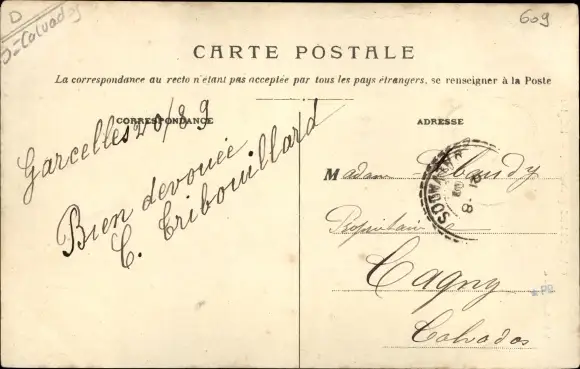 D
D=Calvados
609
CARTE POSTALE
La correspondance au recto n'étant pas acceptée par tous les pays étrangers, se renseigner à la Poste
CORRESPONDANCE
ADRESSE
Garcelles 20/8 9
Bien devouée
C. Tribouillard
Madame
Propriétaire
Cagny
Calvados